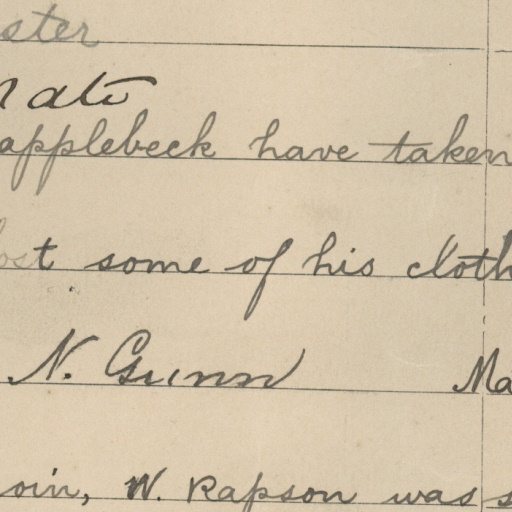 ster
applebeck have taken
lost some of his cloth
N. Gunn Ma
oin, W. Rapson was s